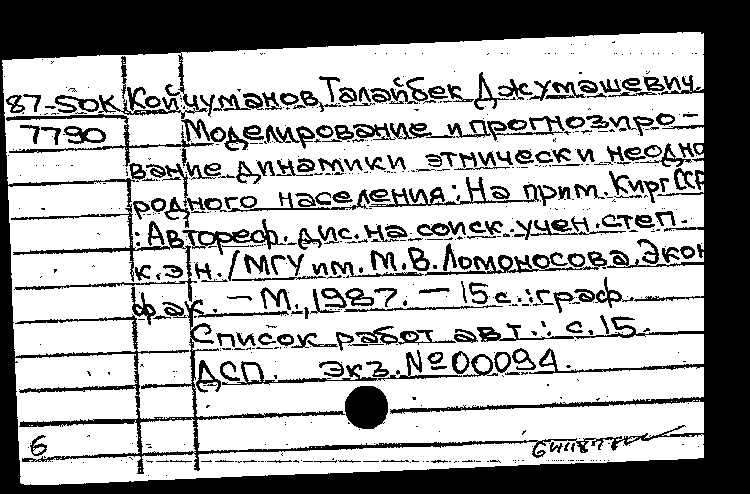 87-5ДК Койчуманов, Талайбек Джумашевич.
7790 Моделирование и прогнозиро-
вание динамики этнически неодно
родного населения: На прим. Кирг ССР
: Автореф. дис. на соиск. учен. степ.
к. э н. /МГУ им. М.В.Ломоносова. Экон
фак. — М., 1987. — 15 с.: граф
Список работ авт.: с. 15.
ДСП. Экз. № 00094.
6